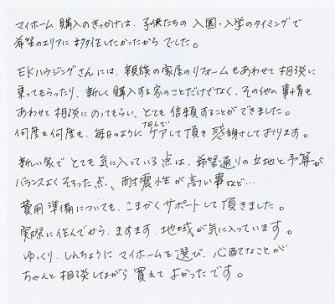 マイホーム購入のきっかけは、子供たちの入園・入学のタイミングで
希望のエリアに移住したかったからでした。
EKハウジングさんには、親族の家屋のリフォームもあわせて相談に
乗ってもらったり、新しく購入する家のことだけでなく、その他の事情も
あわせて相談にのってもらい、とても信頼することができました。
何度も何度も、毎日のように悩んで
ケアして頂き感謝しております。
新しい家でとても気に入っている点は、希望通りの立地と予算が
バランスよくそろった点、耐震性が高い事など…
費用準備についても、こまかくサポートして頂きました。
実際に住んでから、ますます、地域が気に入っています。
ゆっくり、しんちょうにマイホームを選び、心配なことが
ちゃんと相談しながら買えてよかったです。